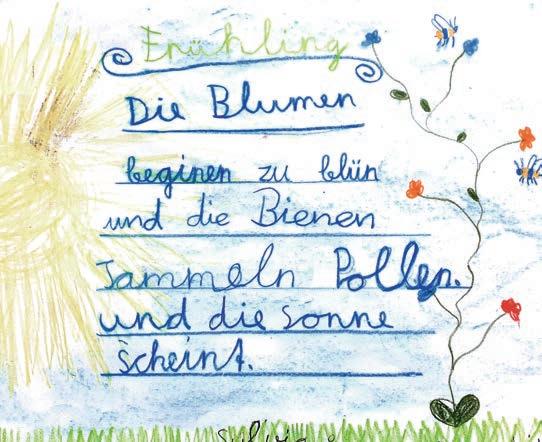 Frühling
Die Blumen
beginen zu blün
und die Bienen
sammeln Pollen.
und die sonne
scheint.